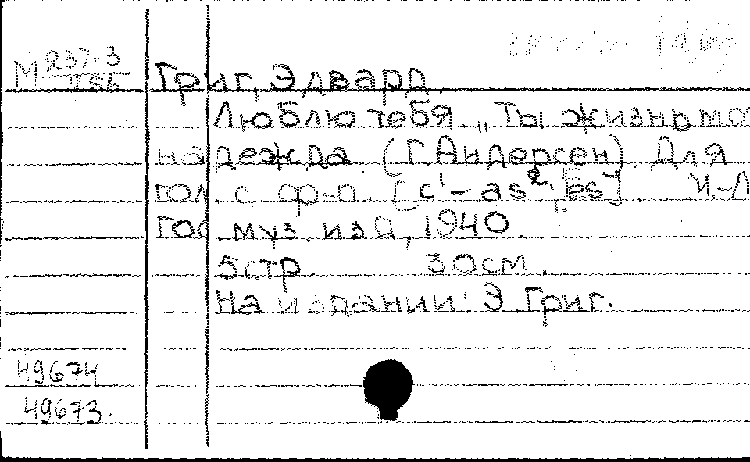 М 237-3
Григ, Эдвард.
Люблю тебя. „Ты жизнь мо
надежда. (Г. Андерсен). Для
гол. с ф-п. [c¹-as², es]. М.-Л
Гос. муз. изд, 1940.
5 стр. 30 см.
На издании: Э. Григ.
49674
49673.